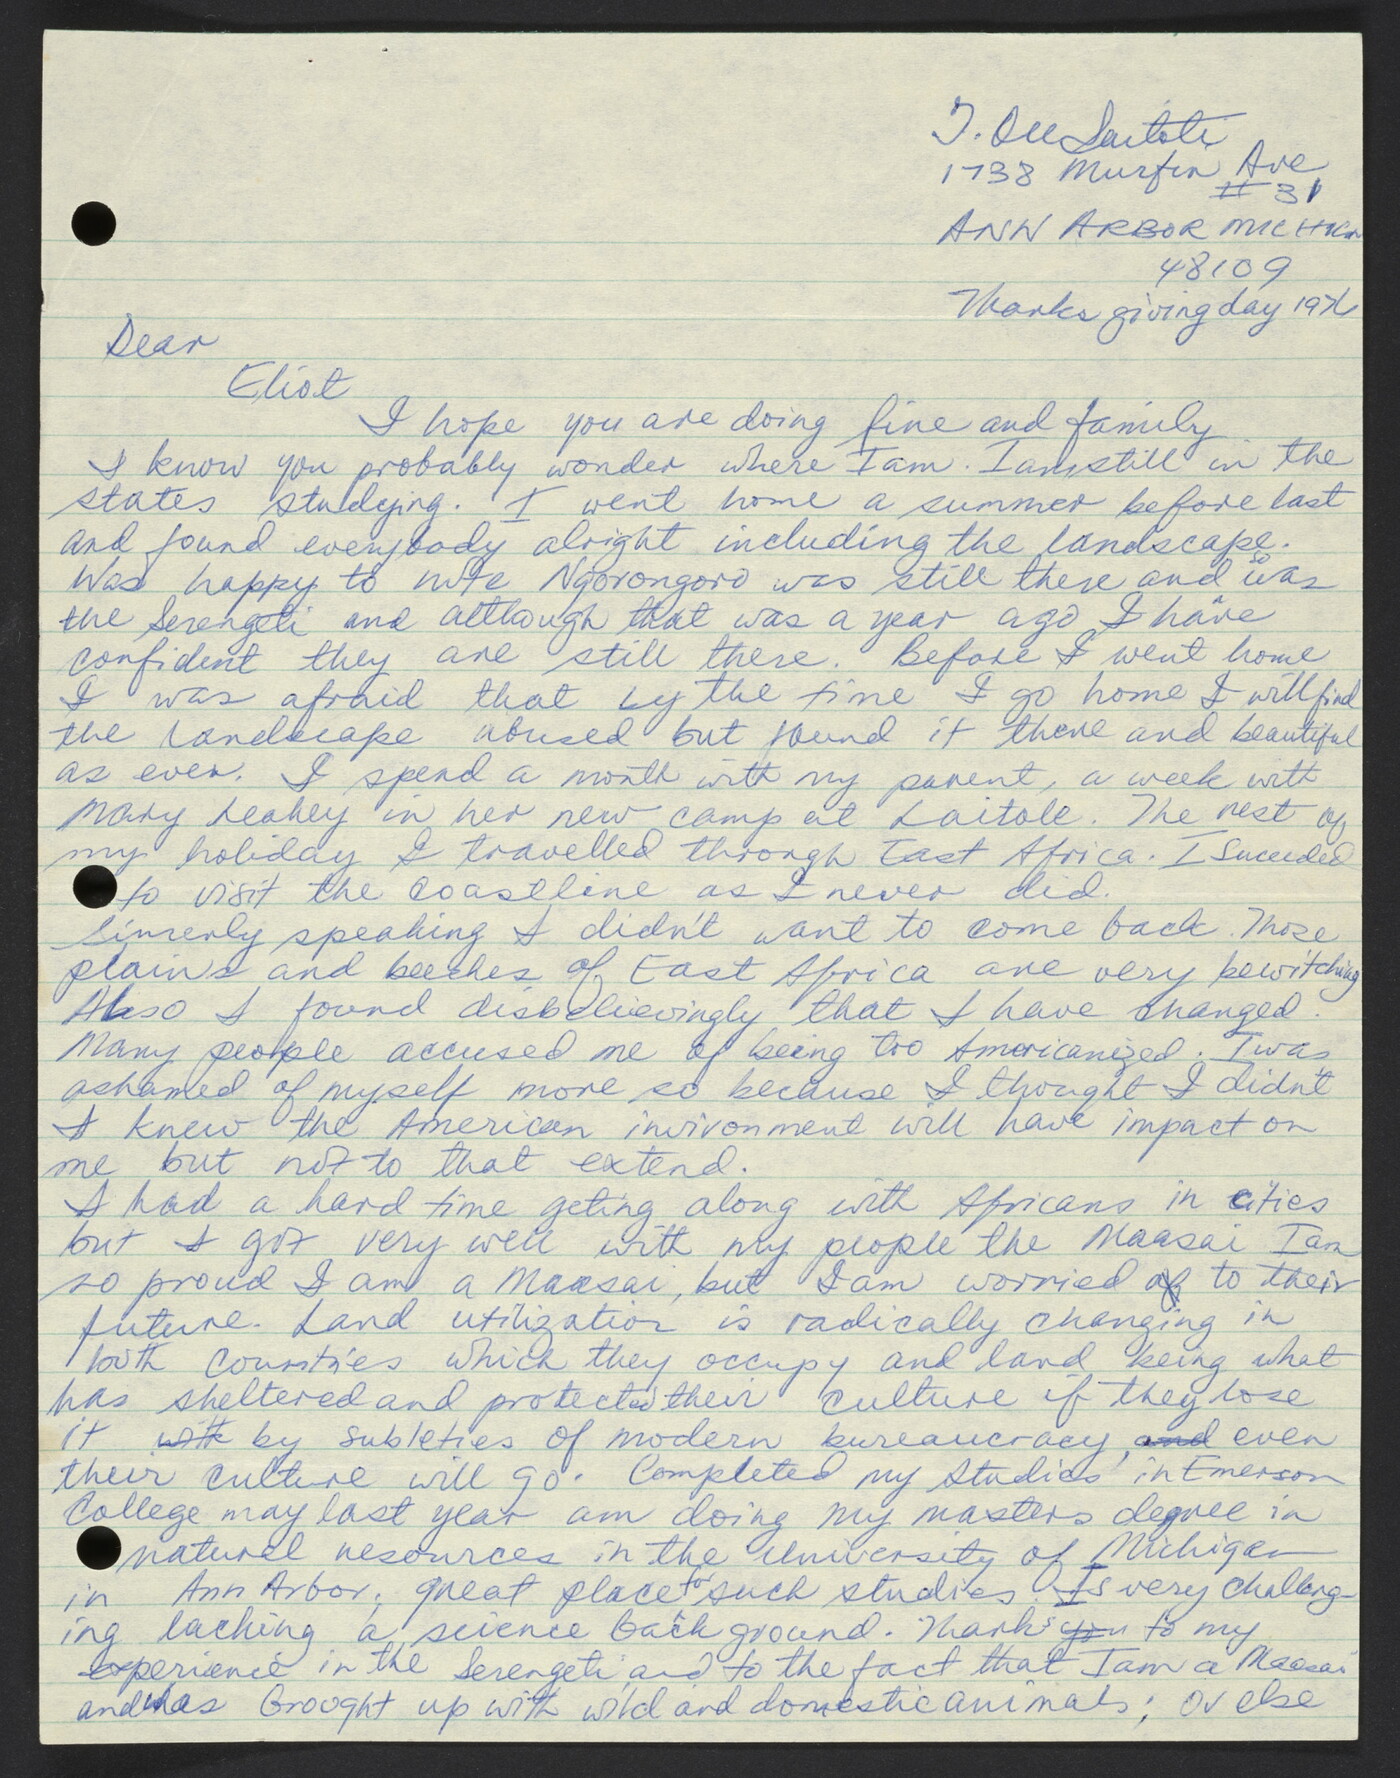 T. Ole Saitoti
1738 Murfin Ave
# 31
ANN ARBOR MICHIGAN
48109
Thanks giving day 1976
Dear
Eliot
I hope you are doing fine and family
I know you probably wonder where I am. I am still in the
states studying. I went home a summer before last
and found everybody alright including the landscape.
Was happy to note Ngorongoro was still there and so was
the Serengeti and although that was a year ago I have
confident they are still there. Before I went home
I was afraid that by the time I go home I will find
the landscape abused but found it there and beautiful
as ever. I spend a month with my parent, a week with
Mary Leakey in her new camp at Laitole. The rest of
my holiday I travelled through East Africa. I succeeded
to visit the coastline as I never did.
Sincerly speaking I didn't want to come back. Those
plains and beeches of East Africa are very bewitching
Also I found disbelievingly that I have changed.
Many people accused me of being too Americanized. I was
ashamed of myself more so because I thought I didn't
I knew the American invironment will have impact on
me but not to that extend.
I had a hard time geting along with Africans in cities
but I got very well with my people the Maasai I am
so proud I am a Maasai, but I am worried of to their
future. Land utilization is radically changing in
both countries which they occupy and land being what
has sheltered and protected their culture if they lose
it with by subleties of modern bureaucracy, and even
their culture will go. Completed my studies in Emerson
College may last year am doing my masters degree in
natural resources in the University of Michigan
in Ann Arbor; great place for such studies. Is very challeng-
ing lacking a science back ground. Thank's you to my
experience in the Serengeti and to the fact that I am a Maasai
and was brought up with wild and domestic animals; or else